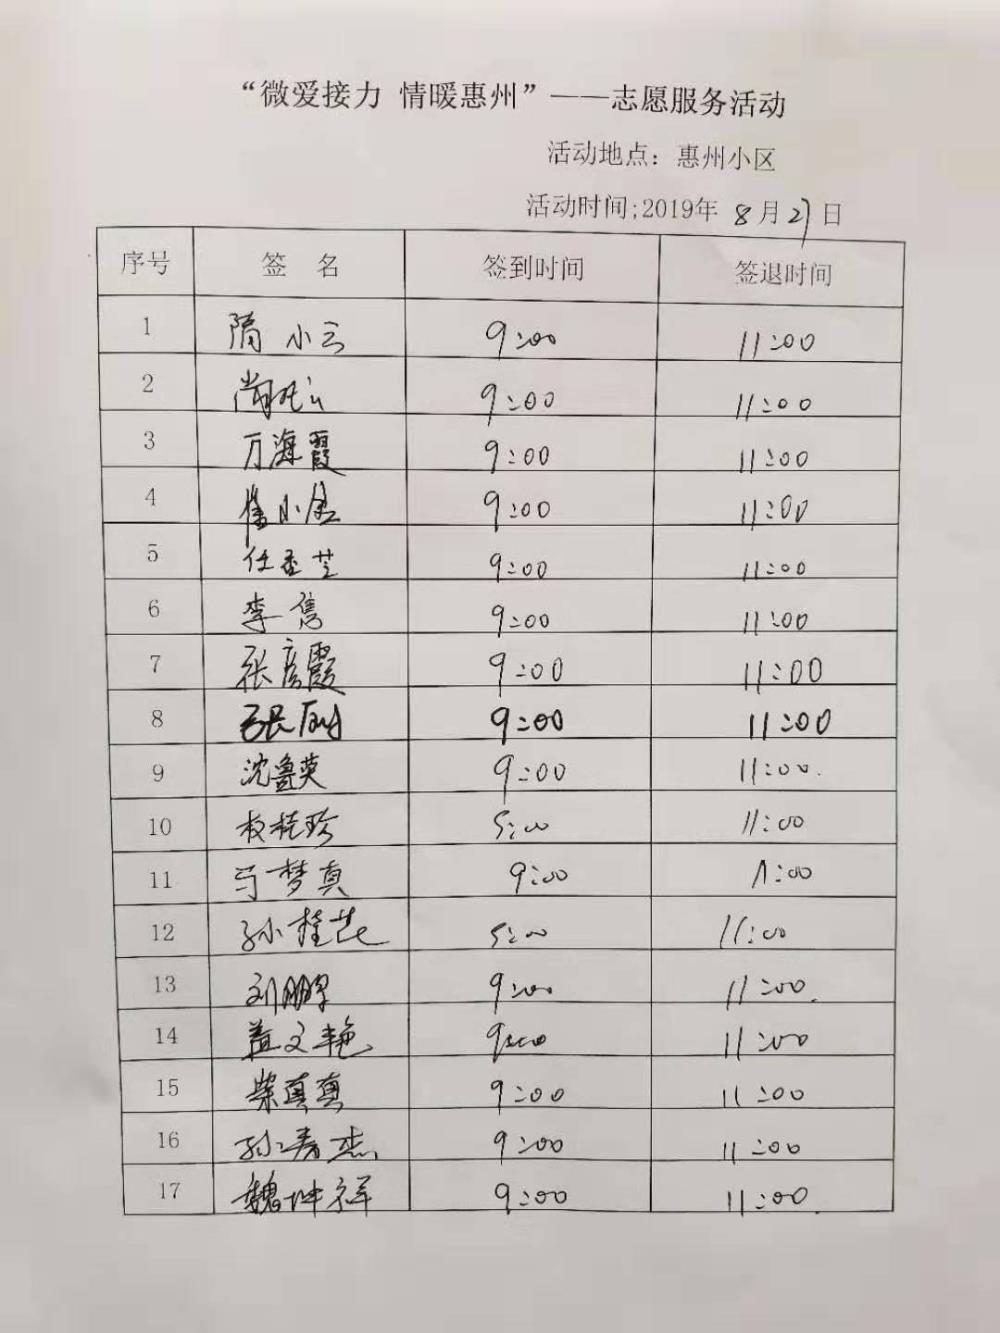 “微爱接力 情暖惠州”——志愿服务活动
活动地点：惠州小区
活动时间;2019年 8月27日
序号 签 名 签到时间 签退时间
1 隋小云 9:00 11:00
2 9:00 11:00
3 万海霞 9:00 11:00
4 崔小 9:00 11:00
5 任香芝 9:00 11:00
6 李隽 9:00 11:00
7 张彦霞 9:00 11:00
8 张 9:00 11:00
9 沈鲁英 9:00 11:00
10 权桂珍 9:00 11:00
11 梦真 9:00 11:00
12 孙桂花 9:00 11:00
13 刘鹏 9:00 11:00
14 盖文艳 9:00 11:00
15 柴真真 9:00 11:00
16 孙秀杰 9:00 11:00
17 魏坤祥 9:00 11:00